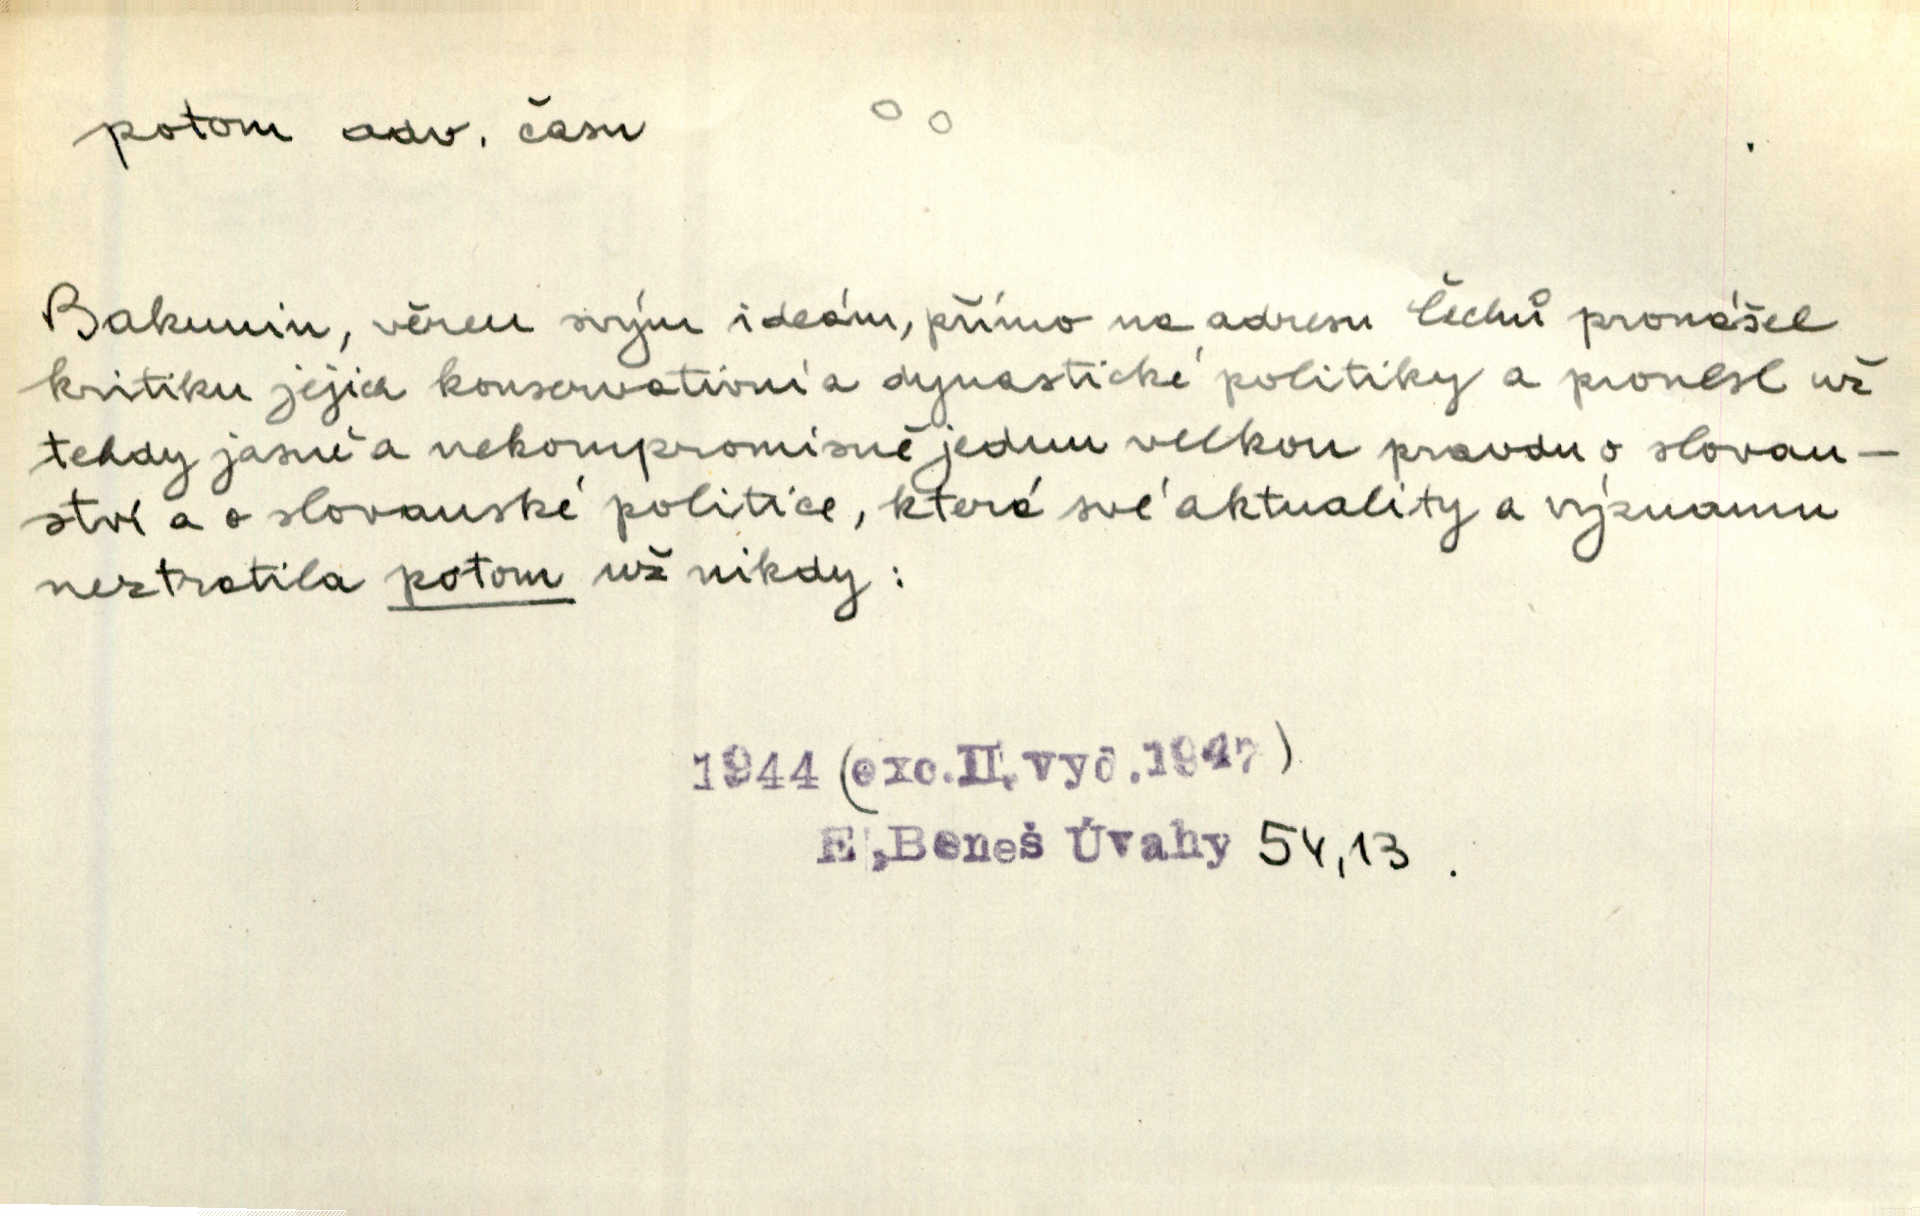 potom adv. času
Bakunin, věren svým ideám, přímo na adresu Čechů pronášel
kritiku jejich konservativní a dynastické politiky a pronesl už
tehdy jasně a nekompromisně jednu velkou pravdu o slovan–
ství a o slovanské politice, která své aktuality a významu
neztratila potom už nikdy:
1944 (exc. II. vyd. 1947)
E. Beneš Úvahy 54,13.